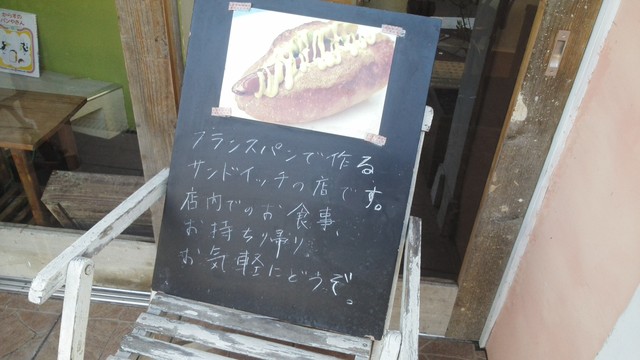 からすの
パンやさん
フランスパンで作る
サンドイッチの店です。
店内でのお食事、
お持ち帰り。
お気軽にどうぞ。